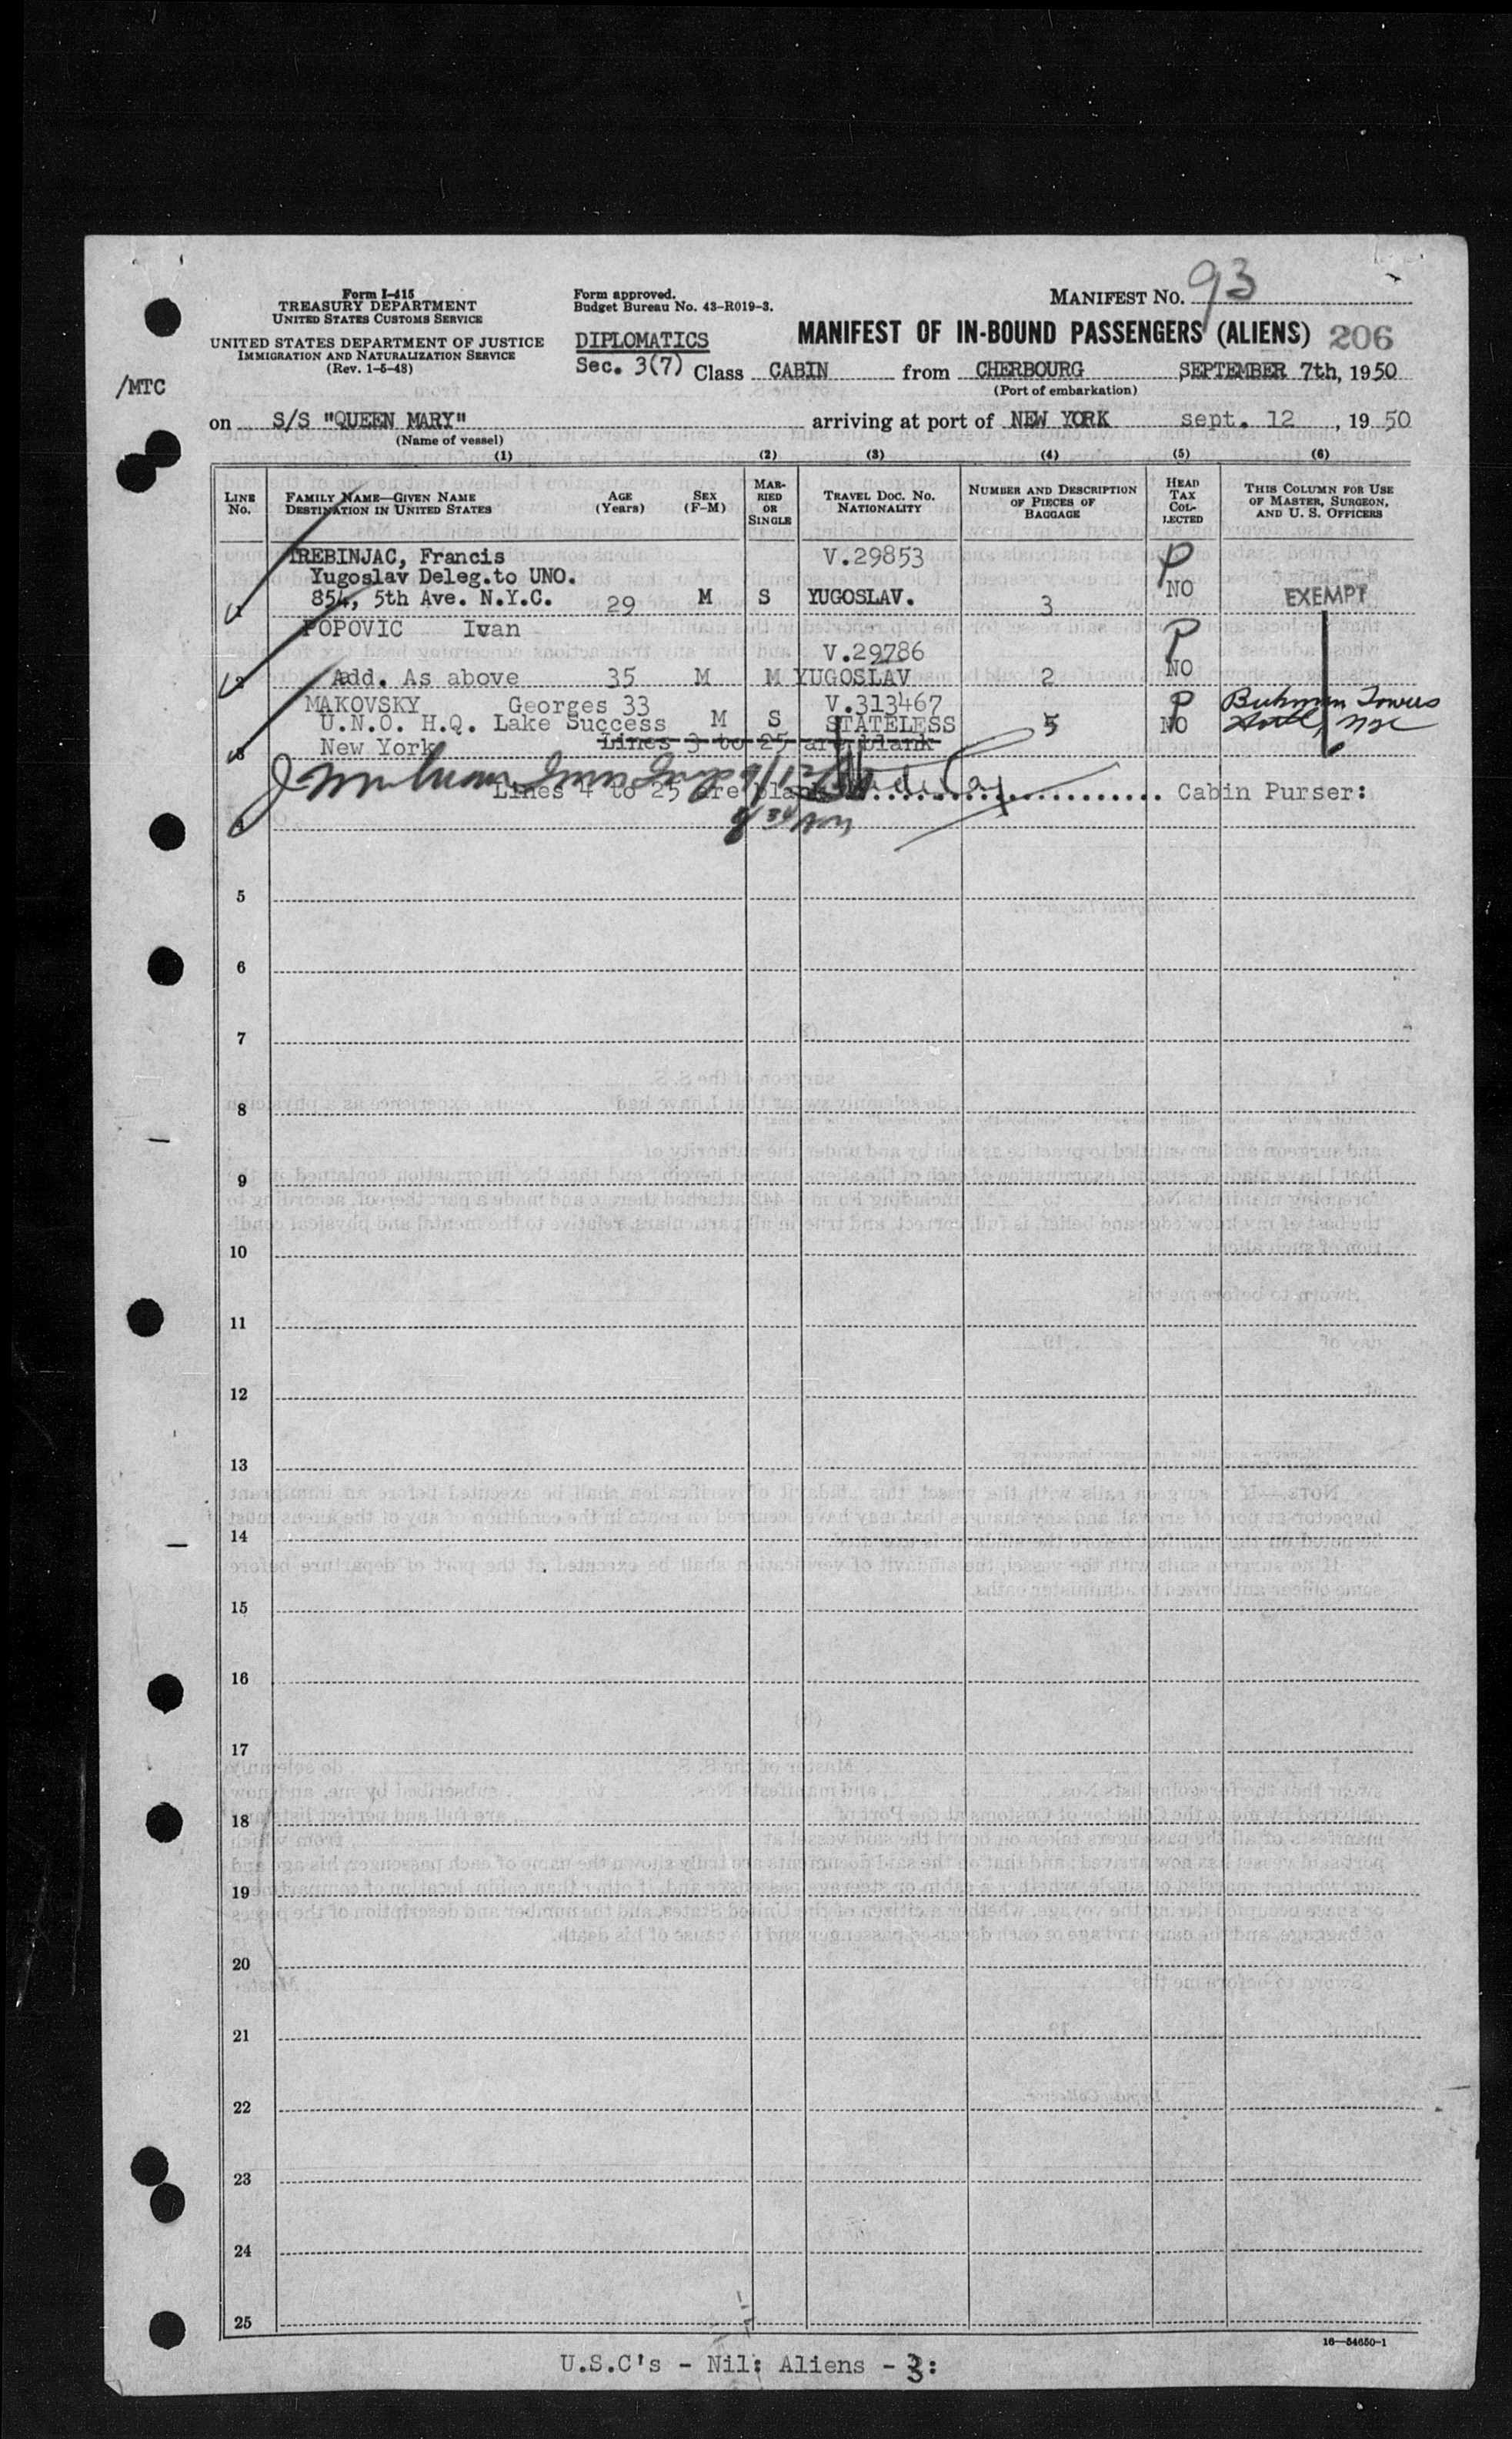 Form I-415
TREASURY DEPARTMENT
UNITED STATES CUSTOMS SERVICE
UNITED STATES DEPARTMENT OF JUSTICE
IMMIGRATION AND NATURALIZATION SERVICE
(Rev. 1-5-48)
/MTC
Form approved.
Budget Bureau No. 43-R019-3.
MANIFEST NO. 93
DIPLOMATICS
MANIFEST OF IN-BOUND PASSENGERS (ALIENS) 206
Sec. 3(7) Class CABIN from CHERBOURG SEPTEMBER 7th, 1950
(Port of embarkation)
on S/S "QUEEN MARY" arriving at port of NEW YORK sept. 12, 19 50
(Name of vessel)
(1) (2) (3) (4) (5) (6)
LINE No. FAMILY NAME—GIVEN NAME DESTINATION IN UNITED STATES AGE (Years) SEX (F-M) MARRIED OR SINGLE TRAVEL DOC. NO. NATIONALITY NUMBER AND DESCRIPTION OF PIECES OF BAGGAGE HEAD TAX COLLECTED THIS COLUMN FOR USE OF MASTER, SURGEON, AND U. S. OFFICERS
TREBINJAC, Francis V.29853 P
Yugoslav Deleg.to UNO. NO
1 854, 5th Ave. N.Y.C. 29 M S YUGOSLAV. 3 EXEMPT
POPOVIC Ivan P
V.29786
2 Add. As above 35 M M YUGOSLAV 2 NO
MAKOVSKY Georges 33 V.313467 P Towers
U.N.O. H.Q. Lake Success M S STATELESS 5 NO Hotel, NYC
3 New York Lines 3 to 25 are blank
Lines 4 to 25 are blank Cabin Purser:
4
5
6
7
8
9
10
11
12
13
14
15
16
17
18
19
20
21
22
23
24
25
16—54650-1
U.S.C's - Nil: Aliens - 3: